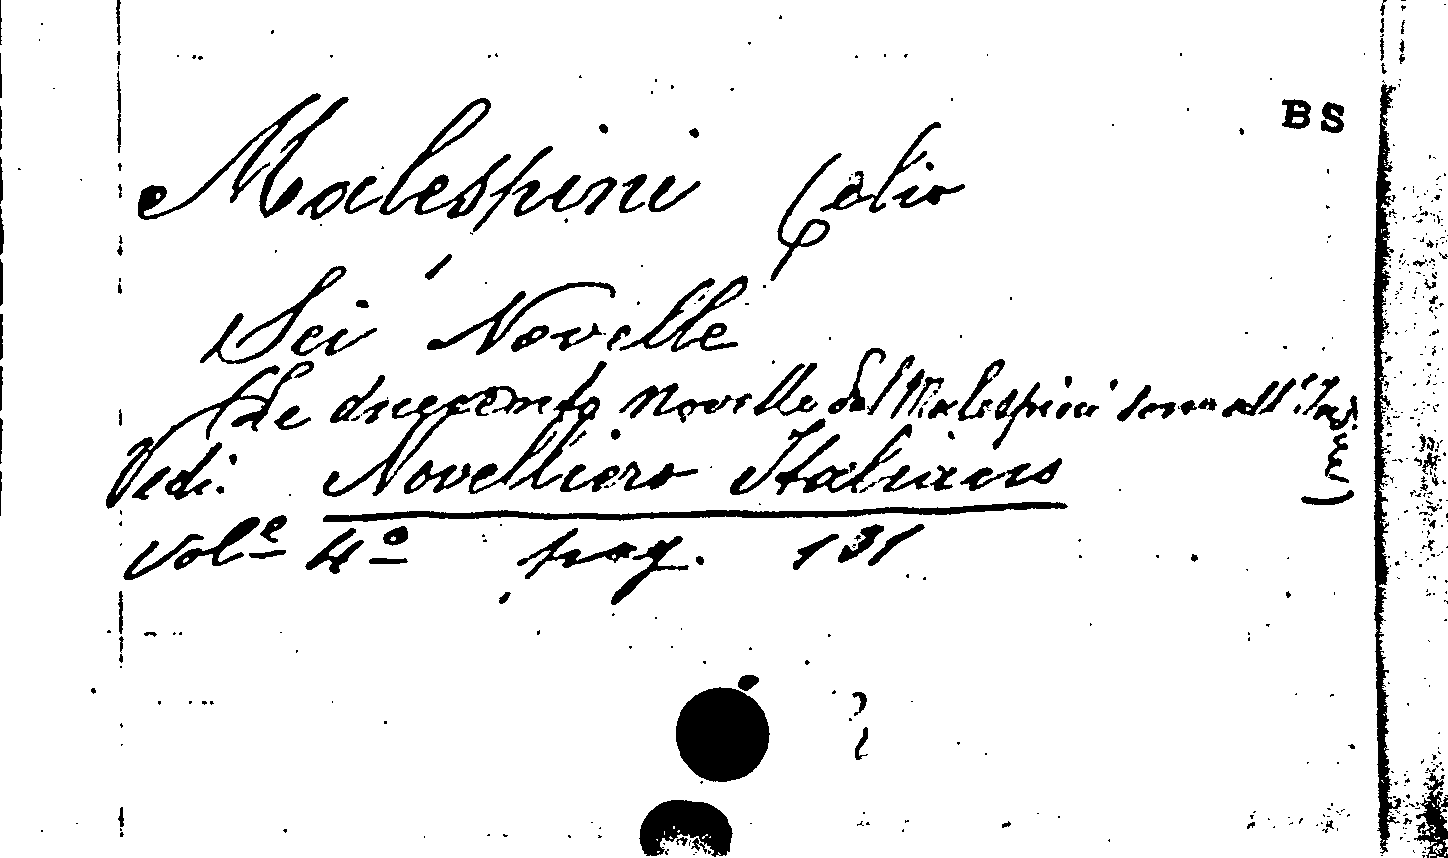 BS
Malespini Celio
Sei Novelle
(Le duecento Novelle del Malespini sono all'
Vedi. Novelliero Italiano
Vol.e 4º pag. 131